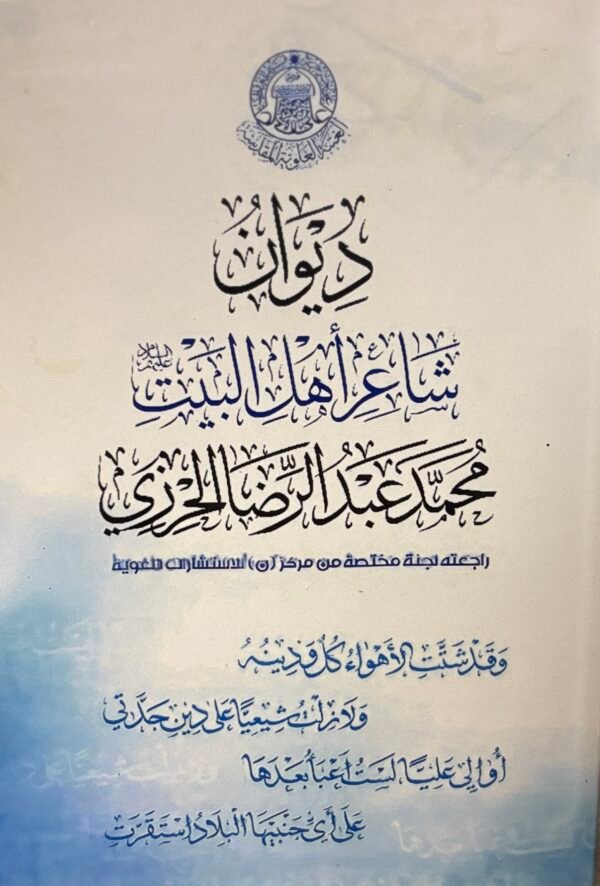 العتبة العلوية المقدسة
دِيْوَانُ
شَاعِرِ أَهْلِ البَيْتِ عليهم السلام
مُحَمَّد عَبْدُ الرِّضَا الحِرْزِي
راجعته لجنة مختصة من مركز (ن) للاستشارات اللغوية
وَقَدْ شَتَّتِ الأَهْوَاءُ كُلٌّ وَدِينُهُ
وَلَا زِلْتُ شِيعِيًّا عَلَى دِينِ جَدَّتِي
أُوَالِي عَلِيًّا لَسْتُ أَعْبَأُ بَعْدَهَا
عَلَى أَيِّ جَنْبَيْهَا الْبِلَادُ اسْتَقَرَّتِ